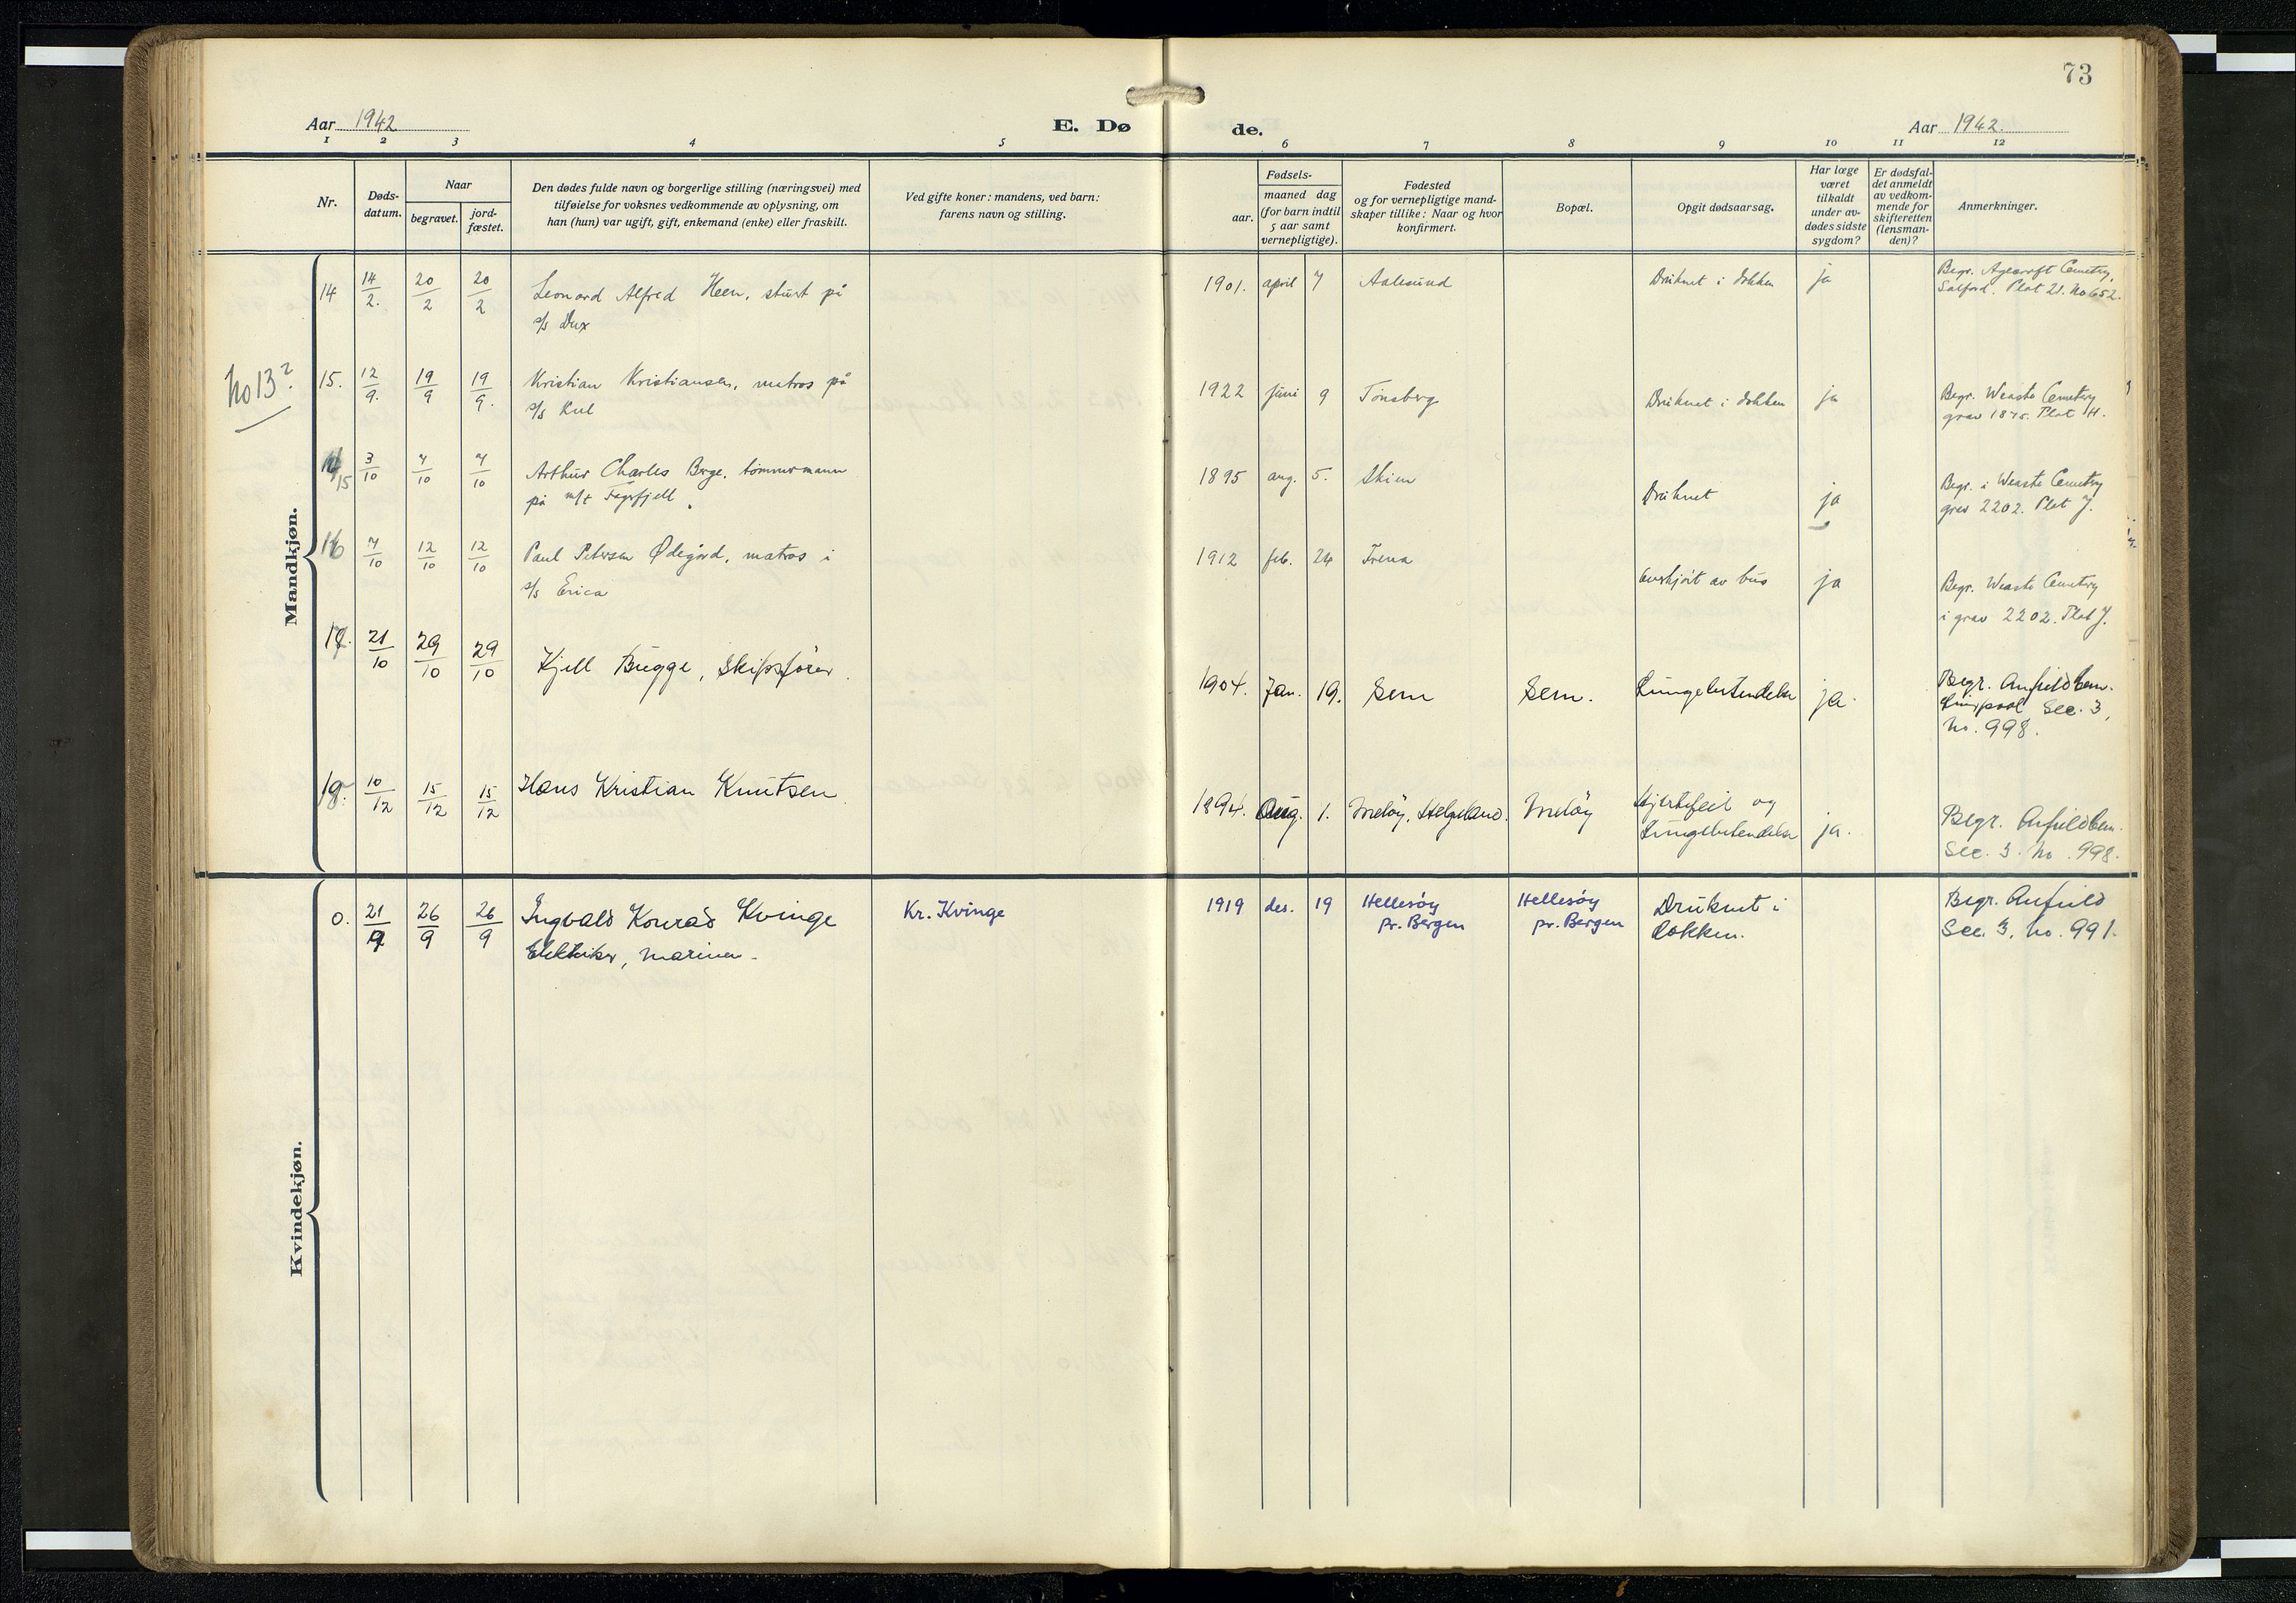 73
Aar 1942
E. Dø
de.
Aar 1942.
1 2 3 4 5 6 7 8 9 10 11 12
Nr.
Døds-
datum.
Naar
begravet.
jord-
fæstet.
Den dødes fulde navn og borgerlige stilling (næringsvei) med
tilføielse for voksnes vedkommende av oplysning, om
han (hun) var ugift, gift, enkemand (enke) eller fraskilt.
Ved gifte koner: mandens, ved barn:
farens navn og stilling.
Fødsels-
aar.
maaned dag
(for barn indtil
5 aar samt
vernepligtige).
Fødested
og for vernepligtige mand-
skaper tillike: Naar og hvor
konfirmert.
Bopæl.
Opgit dødsaarsag.
Har læge
været
tilkaldt
under av-
dødes sidste
sygdom?
Er dødsfal-
det anmeldt
av vedkom-
mende for
skifteretten
(lensman-
den)?
Anmerkninger.
Mandkjøn.
14 14/2. 20/2 20/2 Leonard Alfred Heen, stuert på
s/s Dux
1901. april 7 Aalesund Druknet i dokken ja
Begr. Agecroft Cemetry,
Salford. Plot 21. No 652.
No 13?
15. 12/9. 19/9 19/9. Kristian Kristiansen, matros på
s/s Kul
1922 juni 9 Tønsberg Druknet i dokken ja
Begr. Weaste Cemetry
grav 1875. Plot H.
15 3/10 7/10 7/10 Arthur Charles Berge, tømmermann
på m/t Fagrfjell.
1895 aug. 5. Skien Druknet ja
Begr. i Weaste Cemetry
grav 2202. Plot J.
16 7/10 12/10 12/10 Paul Petersen Ødegård, matros i
s/s Erica
1912 feb. 24 Frena Overkjørt av bus ja
Begr. Weaste Cemetry
i grav 2202. Plot J.
21/10 29/10 29/10 Kjell Bugge, Skipsfører.
1904. Jan. 19. Sem Sem. Lungebetendelse ja.
Begr. Anfield Cem.
Liverpool Sec. 3,
No. 998.
10/12 15/12 15/12 Hans Kristian Knutsen.
1894. Aug. 1. Meløy, Helgeland. Meløy Hjertefeil og
Lungebetendelse ja.
Begr. Anfield Cem.
Sec. 3. No. 998.
Kvindekjøn.
0. 21/9 26/9 26/9 Ingvald Konrad Kvinge
Elektriker, marinen.
Kr. Kvinge
1919 des. 19 Hellesøy
pr. Bergen
Hellesøy
pr. Bergen
Druknet i
Dokken.
Begr. Anfield
Sec. 3, No. 991.